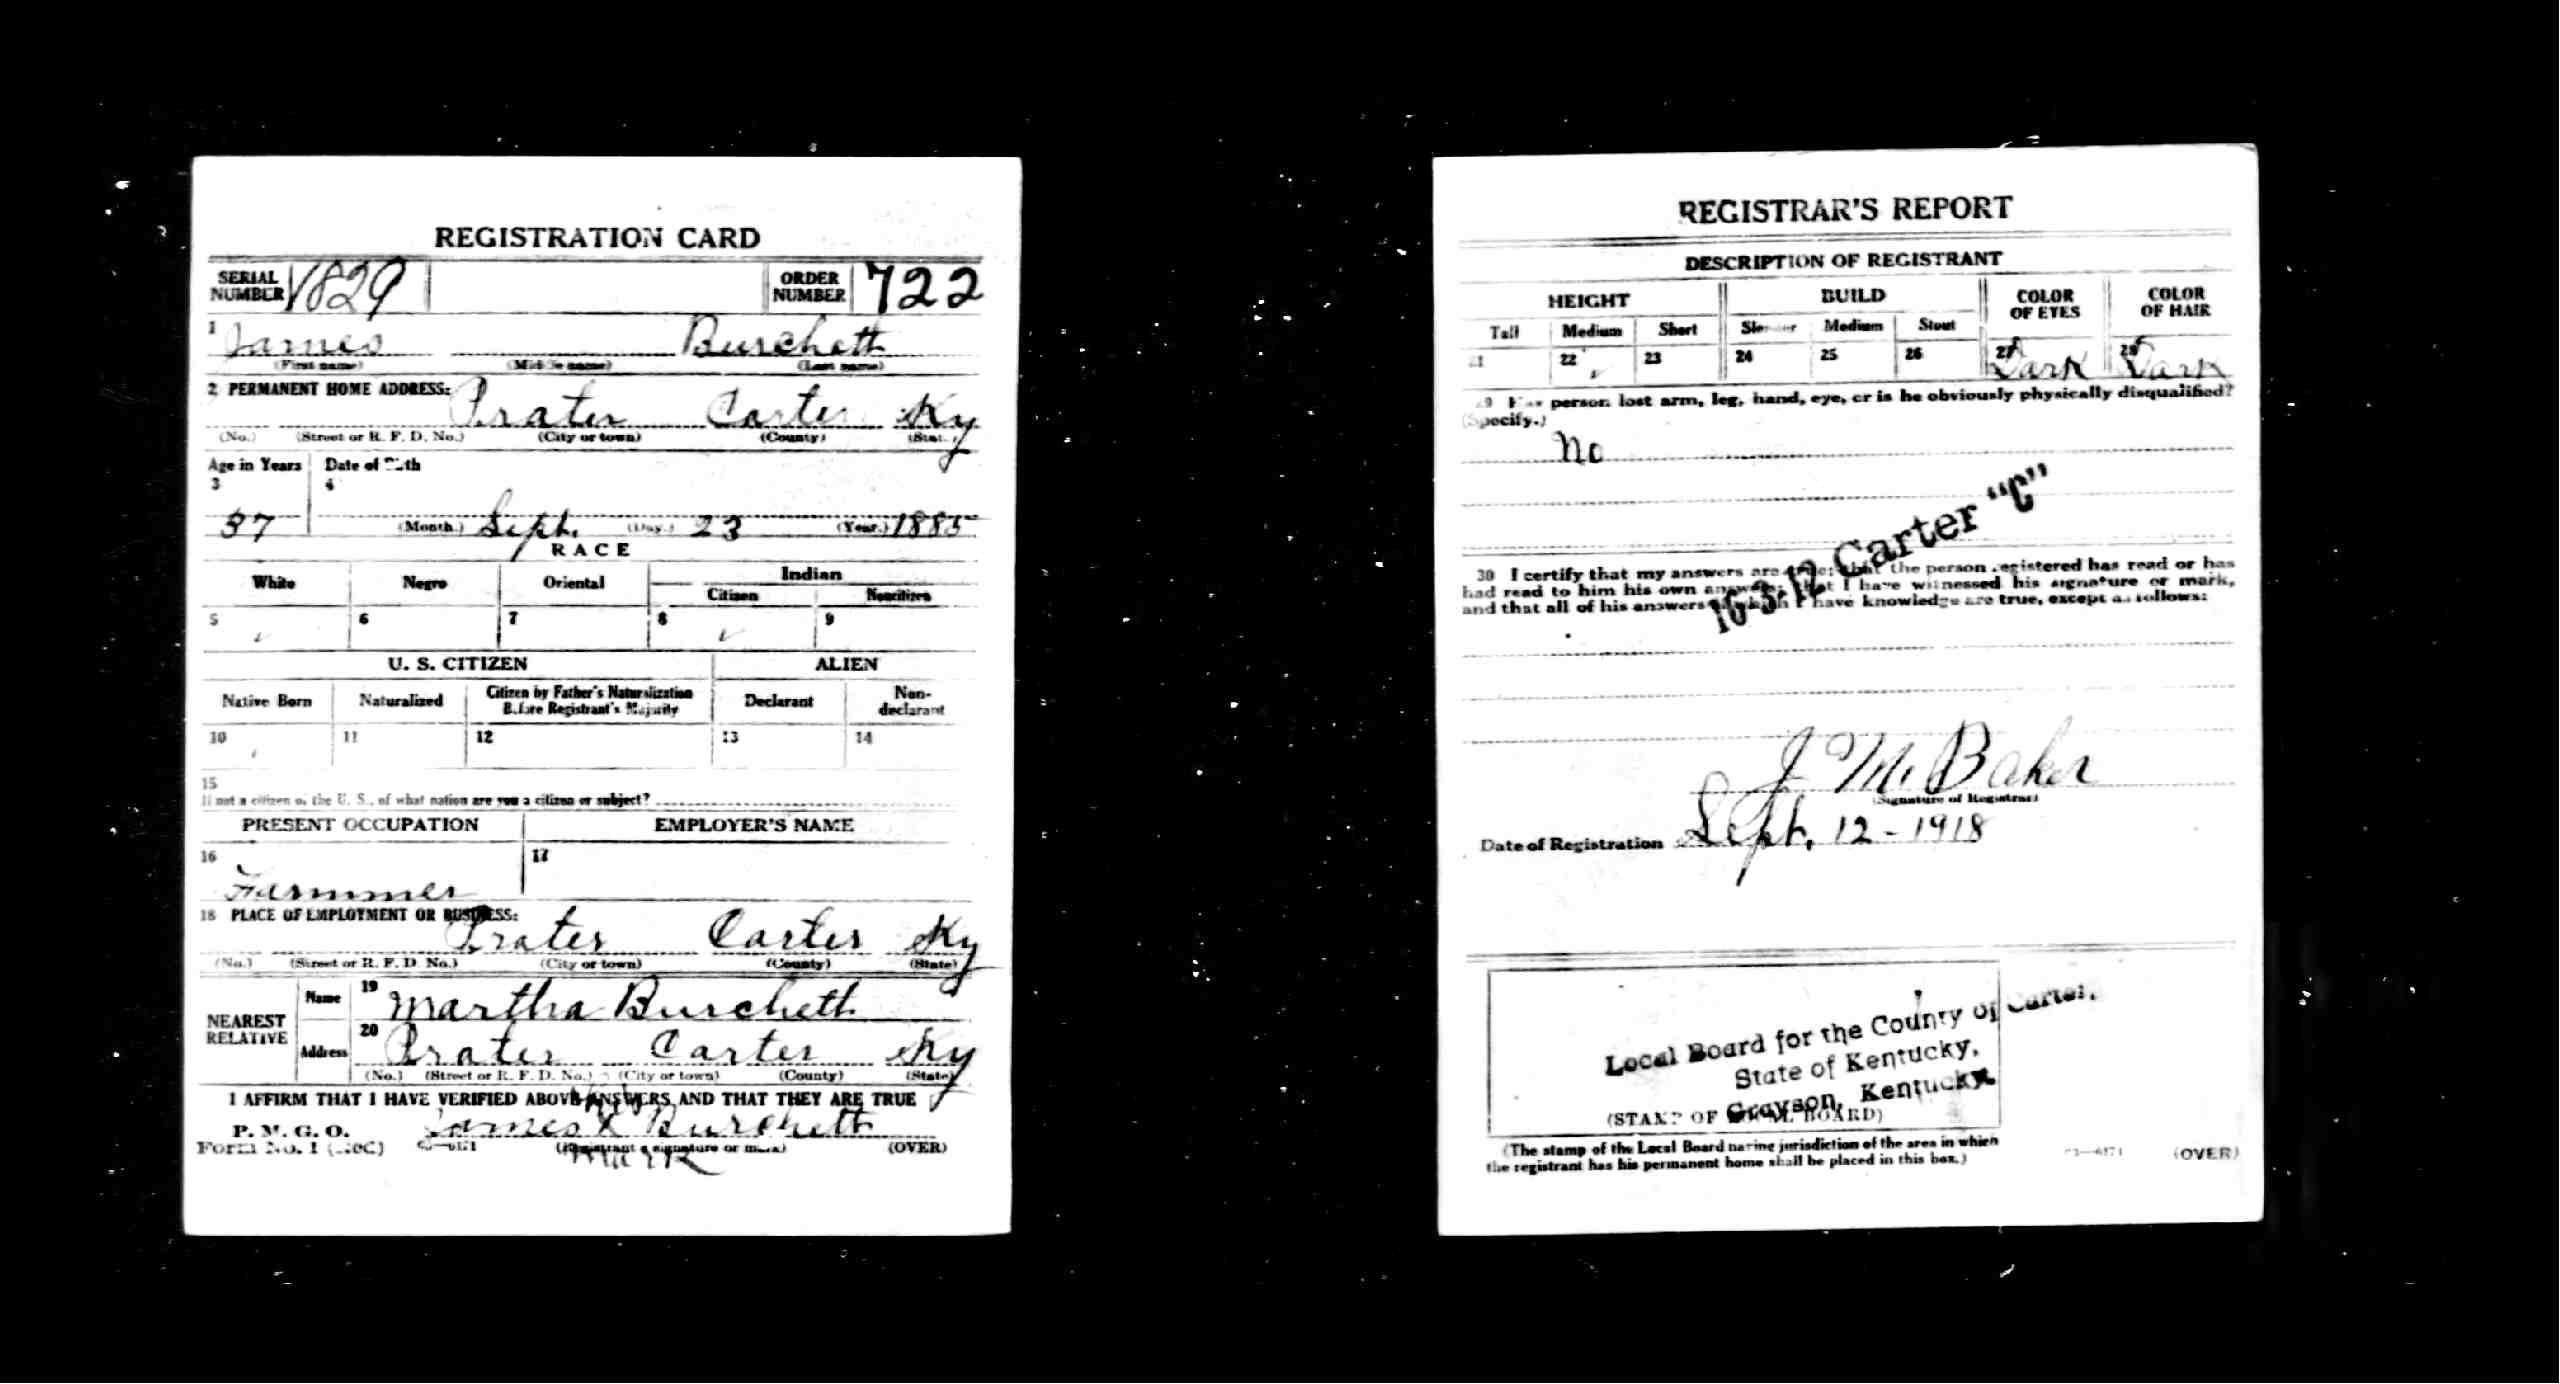 REGISTRATION CARD
SERIAL NUMBER 1829 ORDER NUMBER 722
1 James Burchett
(First name) (Middle name) (Last name)
2 PERMANENT HOME ADDRESS: Prater Carter Ky
(No.) (Street or R. F. D. No.) (City or town) (County) (State)
Age in Years Date of Birth
3 4
37 (Month.) Sept. (Day.) 23 (Year.) 1885
RACE
White Negro Oriental Indian
Citizen Noncitizen
5 ✓ 6 7 8 ✓ 9
U. S. CITIZEN ALIEN
Native Born Naturalized Citizen by Father's Naturalization Before Registrant's Majority Declarant Non-declarant
10 11 12 13 14
15
If not a citizen of the U. S., of what nation are you a citizen or subject?
PRESENT OCCUPATION EMPLOYER'S NAME
16 17
Farmmer
18 PLACE OF EMPLOYMENT OR BUSINESS:
Prater Carter Ky
(No.) (Street or R. F. D. No.) (City or town) (County) (State)
NEAREST RELATIVE Name 19 Martha Burchett
Address 20 Prater Carter Ky
(No.) (Street or R. F. D. No.) (City or town) (County) (State)
I AFFIRM THAT I HAVE VERIFIED ABOVE ANSWERS AND THAT THEY ARE TRUE
his
P. M. G. O. James X Burchett
Form No. 1 (Red) (Registrant's signature or mark) (OVER)
mark
REGISTRAR'S REPORT
DESCRIPTION OF REGISTRANT
HEIGHT BUILD COLOR OF EYES COLOR OF HAIR
Tall Medium Short Slender Medium Stout
21 22 ✓ 23 24 25 26 27 Dark 28 Dark
29 Has person lost arm, leg, hand, eye, or is he obviously physically disqualified?
(Specify.)
No
16-3-12 Carter "C"
30 I certify that my answers are true; that the person registered has read or has
had read to him his own answers; that I have witnessed his signature or mark,
and that all of his answers of which I have knowledge are true, except as follows:
J M Baker
(Signature of Registrar)
Date of Registration Sept. 12 - 1918
Local Board for the County of Carter,
State of Kentucky,
Grayson, Kentucky.
(STAMP OF LOCAL BOARD)
(The stamp of the Local Board having jurisdiction of the area in which
the registrant has his permanent home shall be placed in this box.)
03—6171 (OVER)